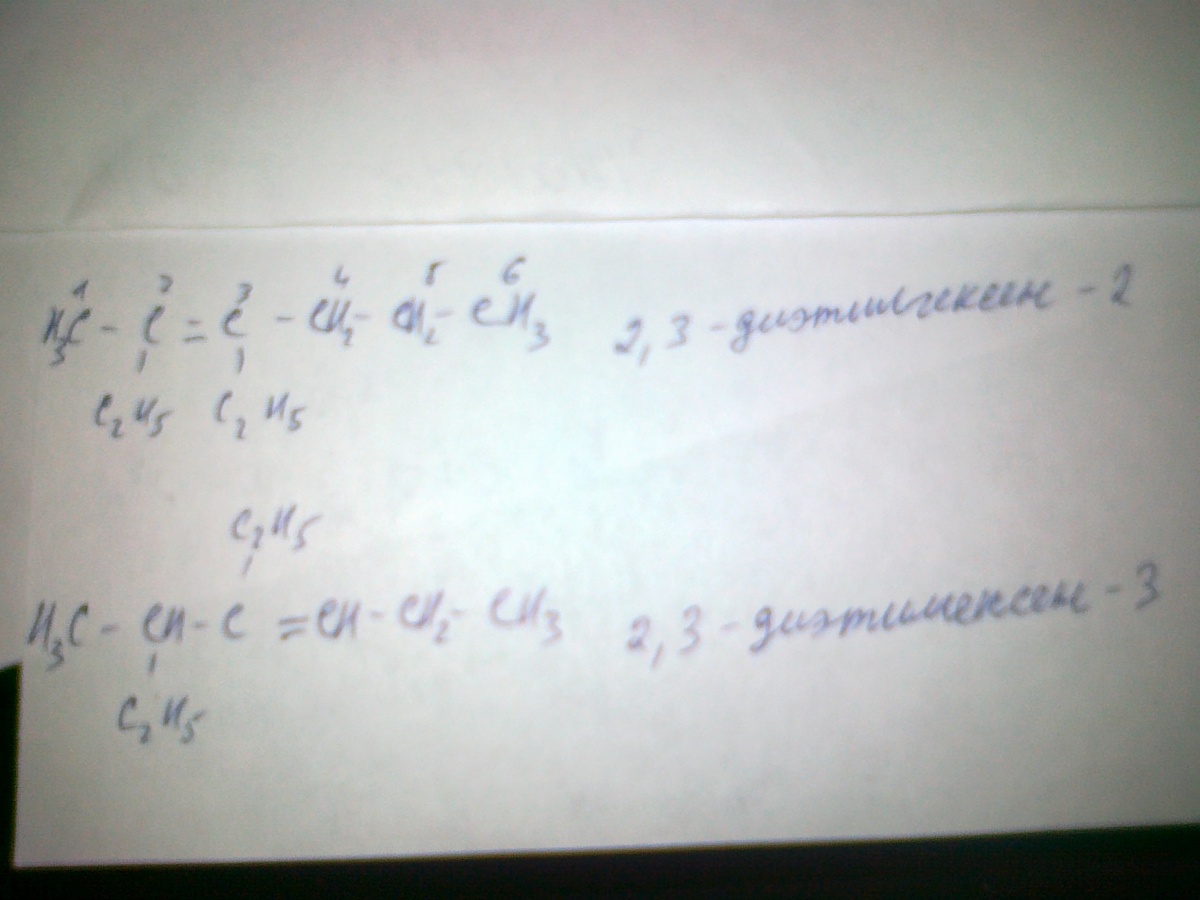 1 2 3 4 5 6
H₃C - C = C - CH₂ - CH₂ - CH₃ 2,3 - диэтилгексен - 2
C₂H₅ C₂H₅
C₂H₅
H₃C - CH - C = CH - CH₂ - CH₃ 2,3 - диэтилгексен - 3
C₂H₅